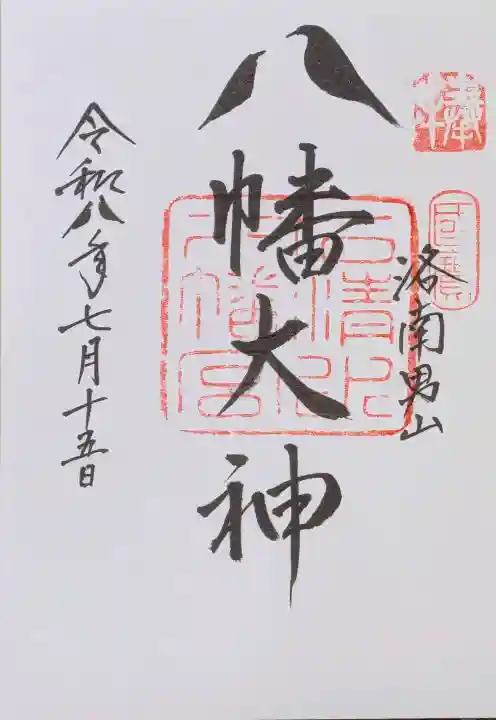 奉拝
国寶
洛南男山
八幡大神
石清水
八幡宮
令和八年七月十五日